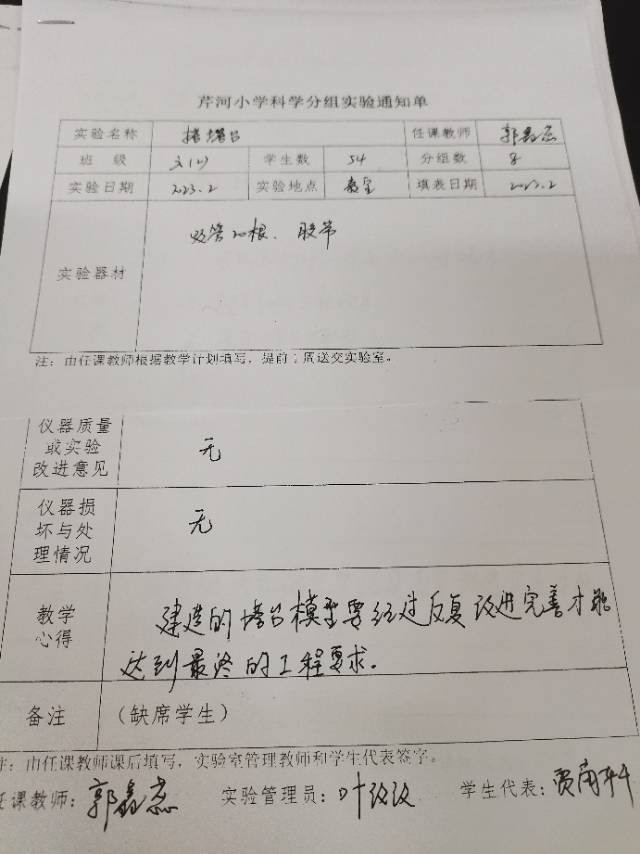 芹河小学科学分组实验通知单
实验名称 搭塔台 任课教师 郭鑫蕊
班 级 六(1) 学生数 54 分组数 8
实验日期 2023.2 实验地点 教室 填表日期 2023.2
实验器材 吸管20根、胶带
注:由任课教师根据教学计划填写,提前1周送交实验室。
仪器质量
或实验
改进意见 无
仪器损
坏与处
理情况 无
教学
心得
建造的塔台模型要经过反复改进完善才能
达到最终的工程要求.
备注 (缺席学生)
注:由任课教师课后填写,实验室管理教师和学生代表签字。
任课教师:郭鑫蕊 实验管理员:叶 学生代表:贾雨